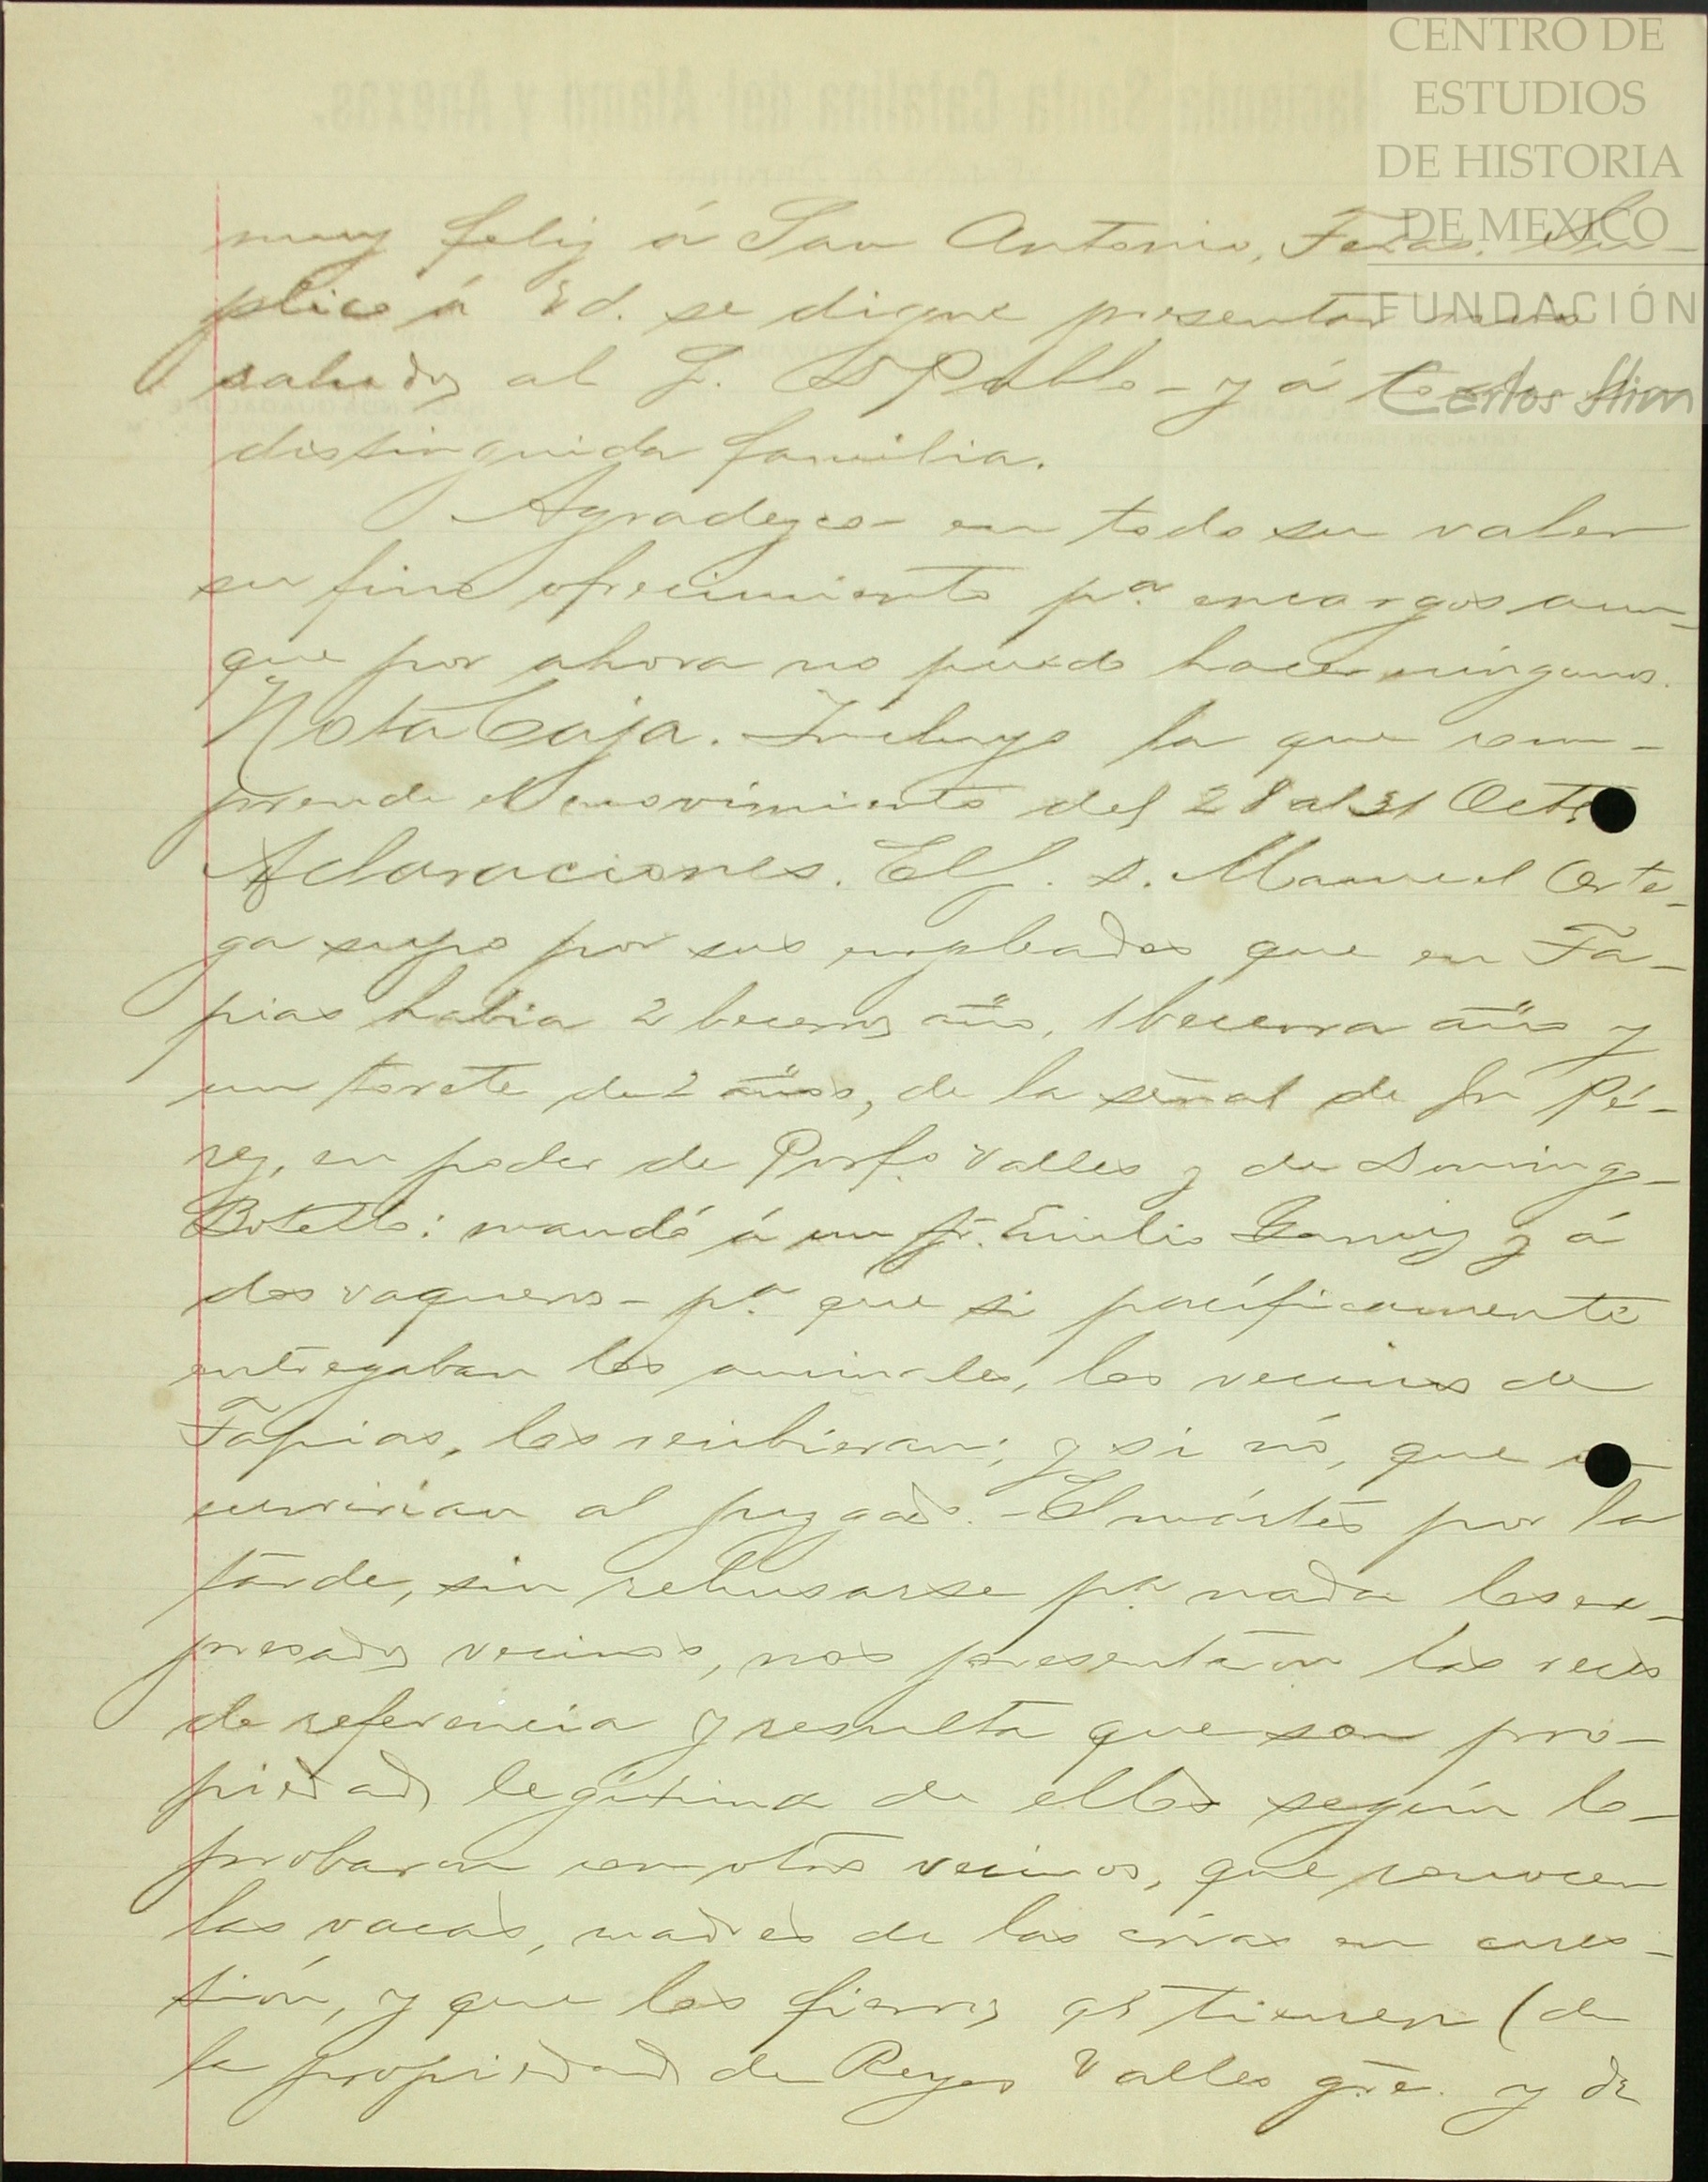 CENTRO DE
ESTUDIOS
DE HISTORIA
DE MEXICO
FUNDACIÓN
Carlos Slim
Hacienda Santa Catalina del Alamo y Anexas.
muy feliz á San Antonio, Texas. Su-
plico á Ud. se digne presentar mis
saludos al S. D Pablo - y á toda su
distinguida familia.
Agradezco en todo su valer
su fino ofrecimiento pª encargos aun-
que por ahora no puedo hacer ningunos.
Nota Caja. Incluyo la que com-
prende el movimiento del 28 al 31 Octe
Aclaraciones. El S. D. Manuel Orte-
ga supo por sus empleados que en Ta-
pias habia 2 becerros año, 1 becerra año y
un torete de 2 años, de la señal de Sn Pé-
rez, en poder de Porfº Valles y de Domingo
Botello: mandó á un Sr. Emilio y á
dos vaqueros - pª que si pacíficamente
entregaban los animales, los vecinos de
Tapias, los recibieran; y si nó, que
currirían al juzgado. - El mártes por la
tarde, sin rehusarse pª nada los ex-
presados vecinos, nos presentaron las reces
de referencia y resulta que son pro-
piedad legítima de ellos según lo
probaron con otros vecinos, que conocen
las vacas, madres de las crías en cues-
tión, y que los fierros qe tienen (de
la propiedad de Reyes Valles y de